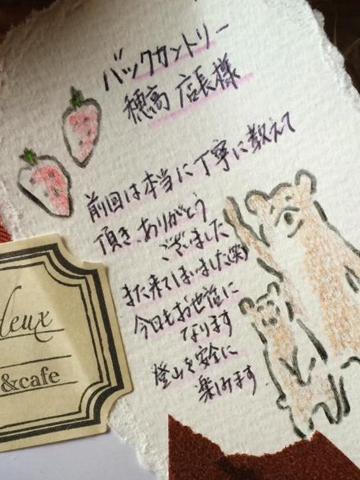 バックカントリー
穂高 店長様
前回は本当に丁寧に教えて
頂き、ありがとう
ございました
また来てしまいました(笑)
今日もお世話に
なります
登山を安全に
楽しみます
deux
&cafe